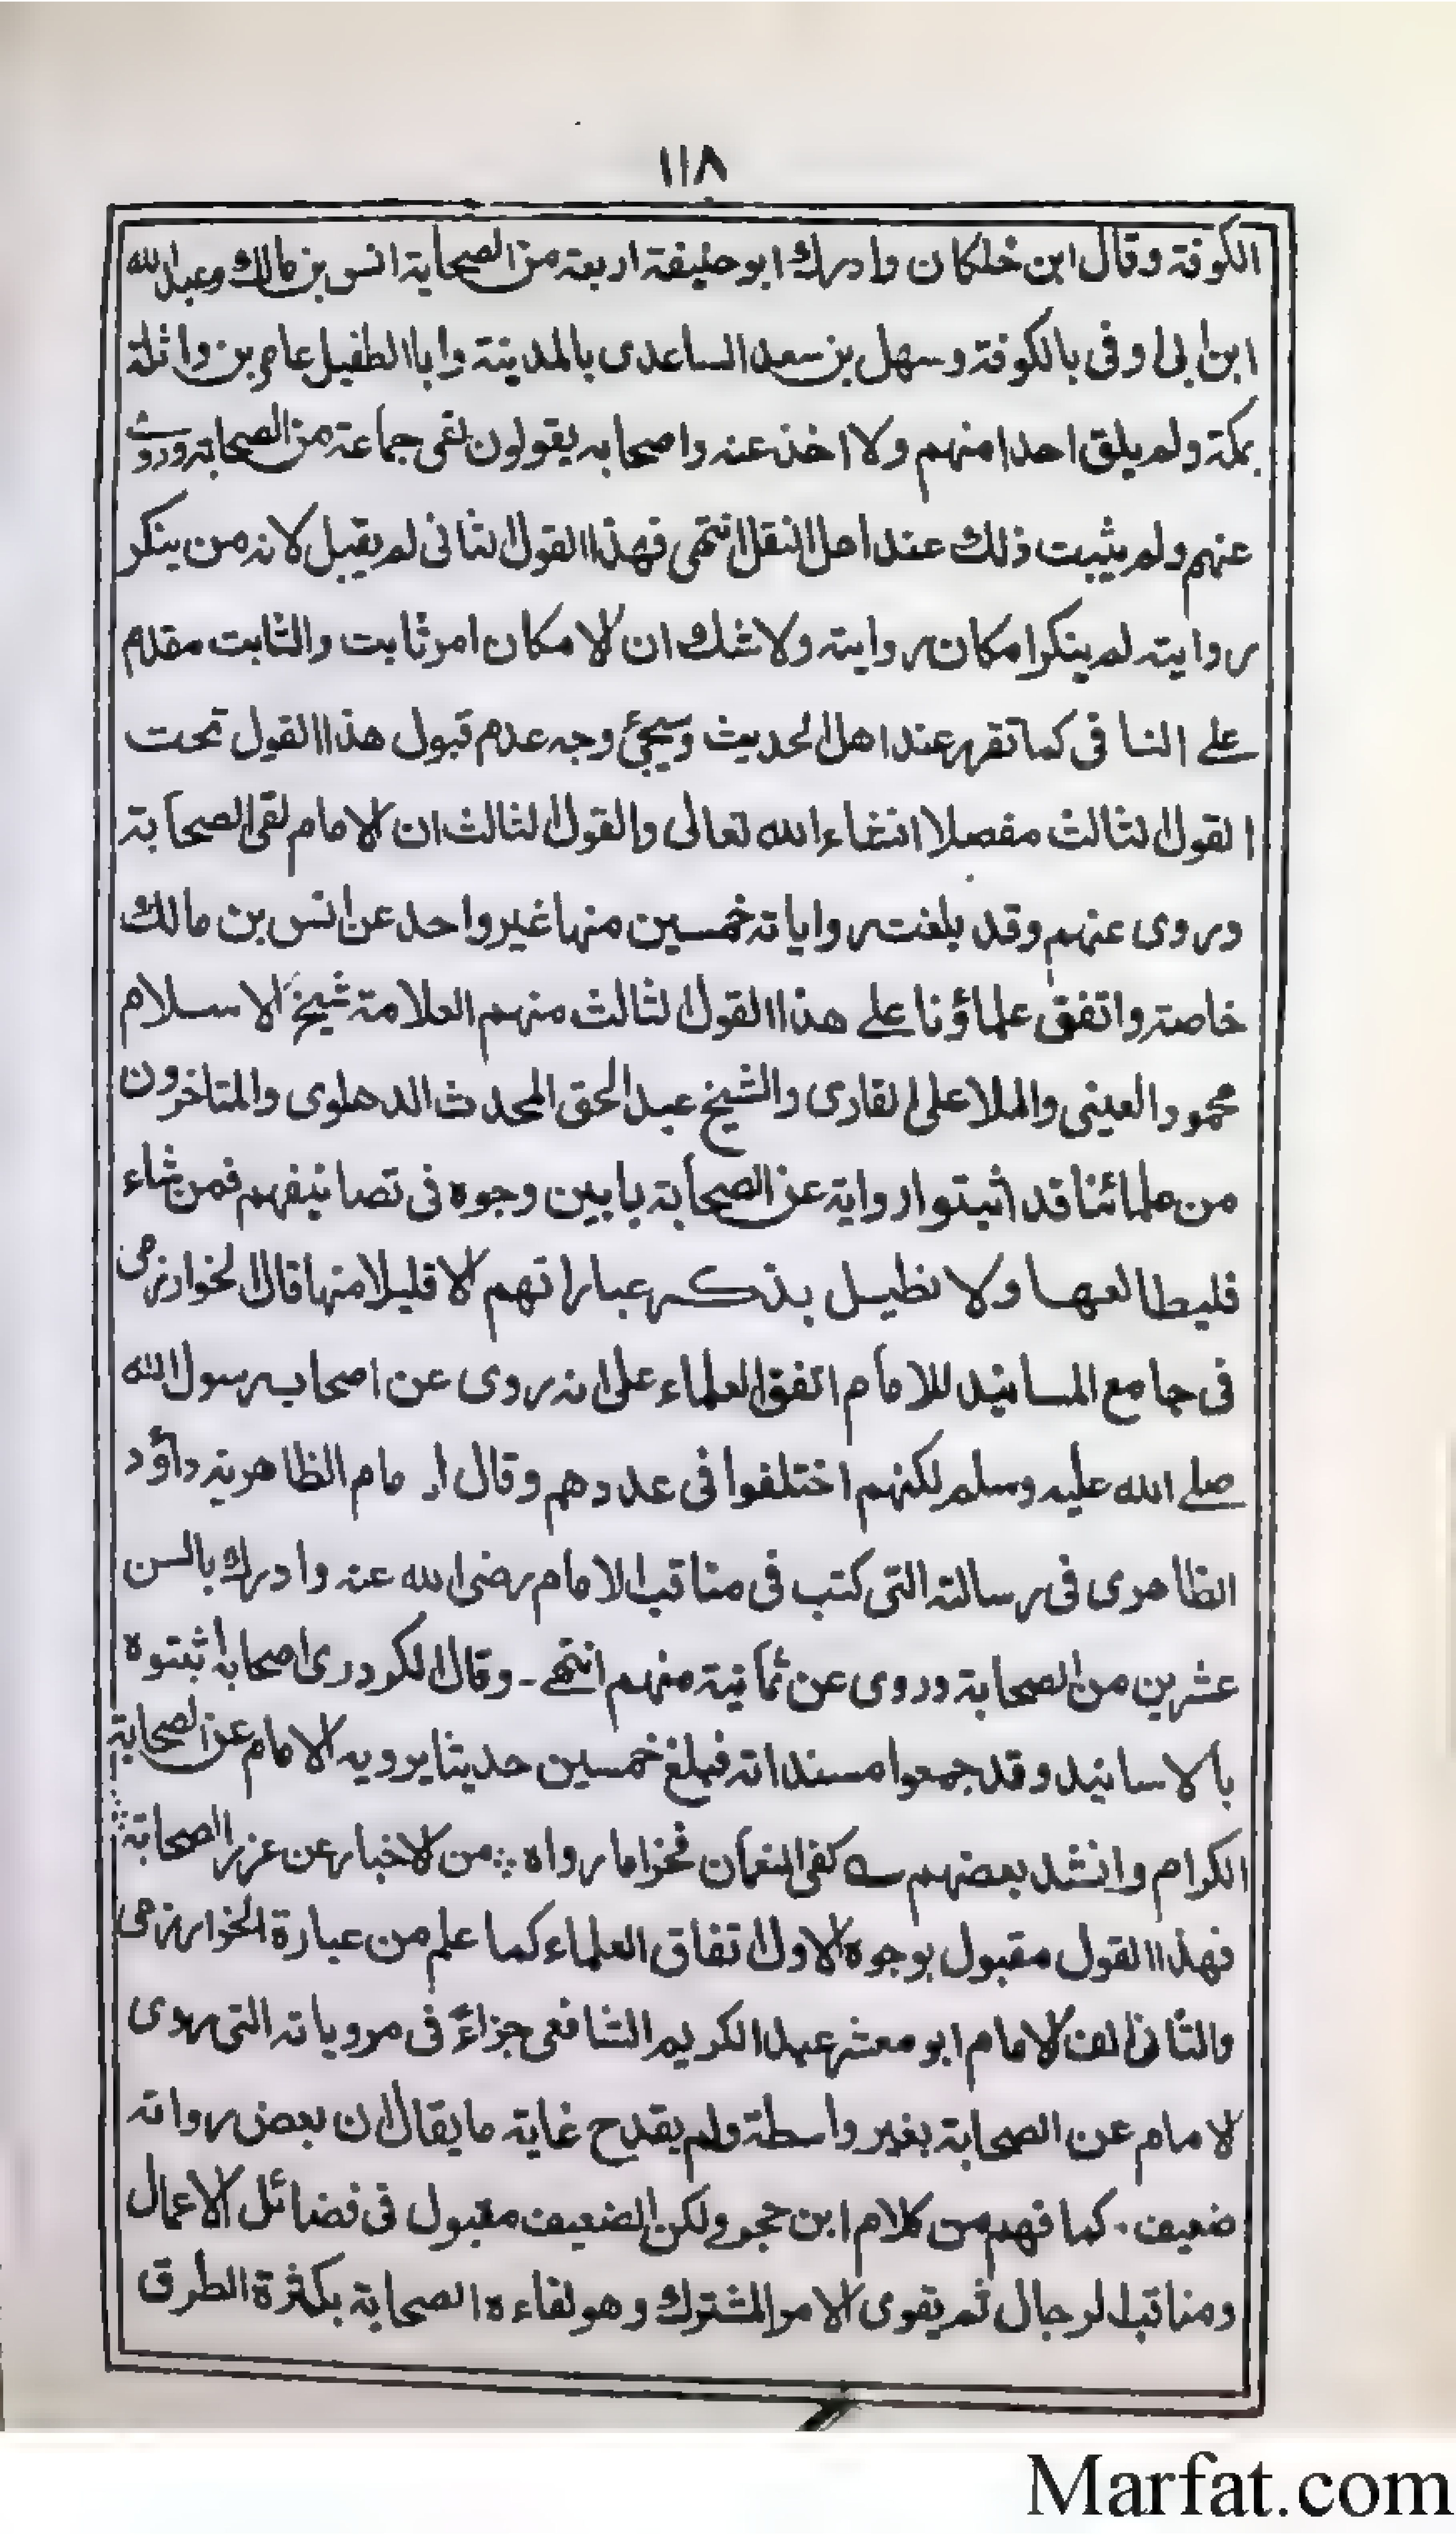 ١١٨
الكوفة وقال ابن خلكان وادرك ابو حنيفة اربعة من الصحابة انس بن مالك وعبد الله
ابن ابى اوفى بالكوفة وسهل بن سعد الساعدى بالمدينة وابا الطفيل عامر بن واثلة
بمكة ولم يلق احدا منهم ولا اخذ عنه واصحابه يقولون لقى جماعة من الصحابة وروى
عنهم ولم يثبت ذلك عند اهل النقل انتهى فهذا القول الثانى لم يقبل لانه من ينكر
روايته لم ينكر امكان روايته ولا شك ان الامكان امر ثابت والثابت مقدم
على النافى كما تقرر عند اهل الحديث وسيجئ وجه عدم قبول هذا القول تحت
القول الثالث مفصلا انشاء الله تعالى والقول الثالث ان الامام لقى الصحابة
وروى عنهم وقد بلغت رواياته خمسين منها غير واحد عن انس بن مالك
خاصة واتفق علماؤنا على هذا القول الثالث منهم العلامة شيخ الاسلام
محمود العينى والملا على القارى والشيخ عبد الحق المحدث الدهلوى والمتاخرون
من علمائنا قد اثبتوا رواية عن الصحابة بابين وجوه فى تصانيفهم فمن شاء
فليطالعها ولا نطيل بذكر عباراتهم الا قليلا منها قال الخوارزمى
فى جامع المسانيد للامام اتفق العلماء على انه روى عن اصحاب رسول الله
صلى الله عليه وسلم لكنهم اختلفوا فى عددهم وقال امام الظاهرية داؤد
الظاهرى فى رسالته التى كتب فى مناقب الامام رضى الله عنه وادرك بالسن
عشرين من الصحابة وروى عن ثمانية منهم انتهى۔ وقال الكودرى اصحابه اثبتوه
بالاسانيد وقد جمعوا مسنداته فبلغ خمسين حديثا يرويه الامام عن الصحابة
الكرام وانشد بعضهم ؎ كفى النعمان فخرا ما رواه ؞ من الاخبار عن عزر الصحابة ؞
فهذا القول مقبول بوجوه الاول اتفاق العلماء كما علم من عبارة الخوارزمى
والثانى الف الامام ابو معشر عبد الكريم الشافعى جزاءً فى مروياته التى روى
لامام عن الصحابة بغير واسطة ولم يقدح غاية ما يقال ان بعض رواته
ضعيف۔ كما فهم من كلام ابن حجر ولكن الضعيف مقبول فى فضائل الاعمال
ومناقب الرجال ثم يقوى الامر المشترك وهو لقاءه الصحابة بكثرة الطرق
Marfat.com